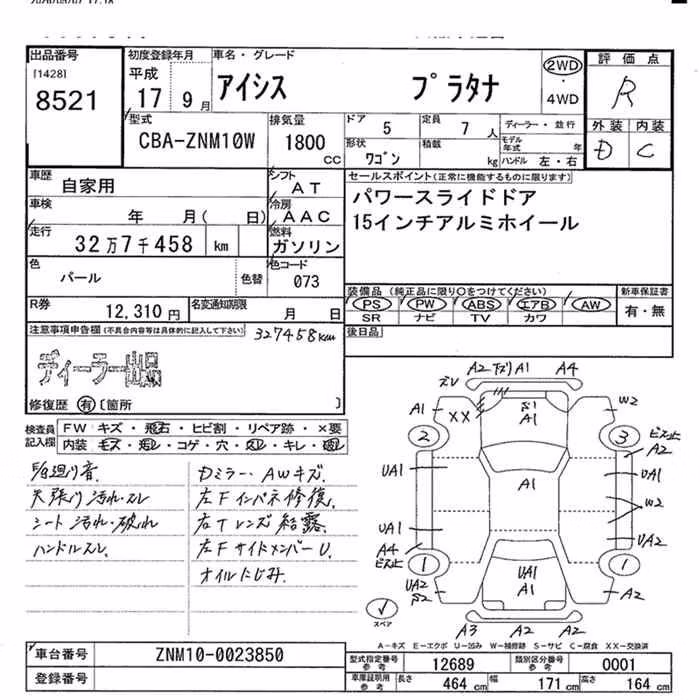 出品番号
[1428]
8521
初度登録年月
平成
17 9 月
車名・グレード
アイシス プラタナ
2WD
・
4WD
評価点
R
外装 内装
D C
型式
CBA-ZNM10W
排気量
1800
CC
ドア 5
定員 7 人
形状 ワゴン
積載 kg
ディーラー・並行
モデル年式 年
ハンドル 左・右
車歴
自家用
シフト
AT
車検
年 月( 日)
冷房
AAC
走行
32万7千458 km
燃料
ガソリン
色
パール
色替
色コード
073
R券
12,310 円
名変通知期限
月 日
セールスポイント(正常に機能するものに限ります)
パワースライドドア
15インチアルミホイール
装備品(純正品に限り〇をつけてください)
PS PW ABS エアB AW
SR ナビ TV カワ
新車保証書
有・無
後日品
注意事項申告欄(不具合内容等は具体的に記入して下さい)
327458km
ディーラー出品
修復歴 有 〔箇所 〕
検査員
記入欄
FW キズ・飛石・ヒビ割・リペア跡・×要
内装・モス・汚レ・コゲ・穴・スレ・キレ・破レ
天張り汚れ・スレ
シート汚れ・破れ
ハンドルスレ
Dミラー・AWキズ
左Fインパネ修復
右Tレンズ結露
左FサイドメンバーU
オイルにじみ
A2 A1 A4
A1 XX S1 A1 W2
2 3
A2
UA1 A1 UA1
W2
UA1 UA2
A4
1 1
UA2 UA1 A1 A2
S2
A3 A2 A2
スペア
A-キズ E-エクボ U-凹み W-補修跡 S-サビ C-腐食 XX-交換済
車台番号 ZNM10-0023850
登録番号
型式指定番号 参考 12689
類別区分番号 参考 0001
車庫証明用 参考 長さ 464 cm 幅 171 cm 高さ 164 cm